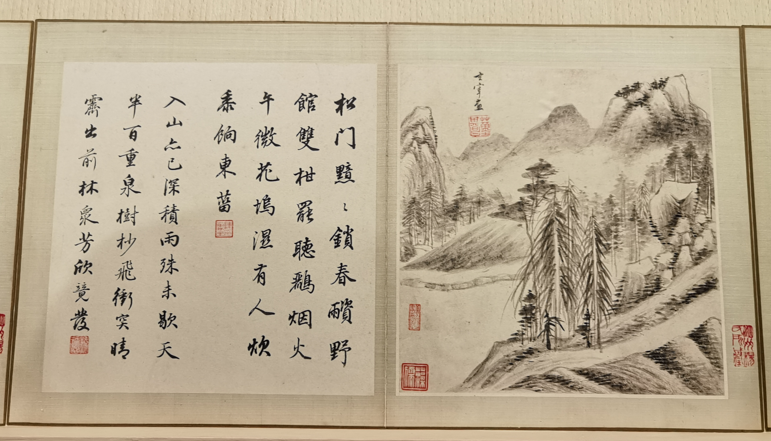 玄宰画
松门黯〻鎖春野
館雙柑罷聽鸝烟火
午微花塢濕有人炊
黍餉東菑
入山亦已深積雨殊未歇天
半百重泉樹杪飛衝突晴
霽出前林眾芳欣競發